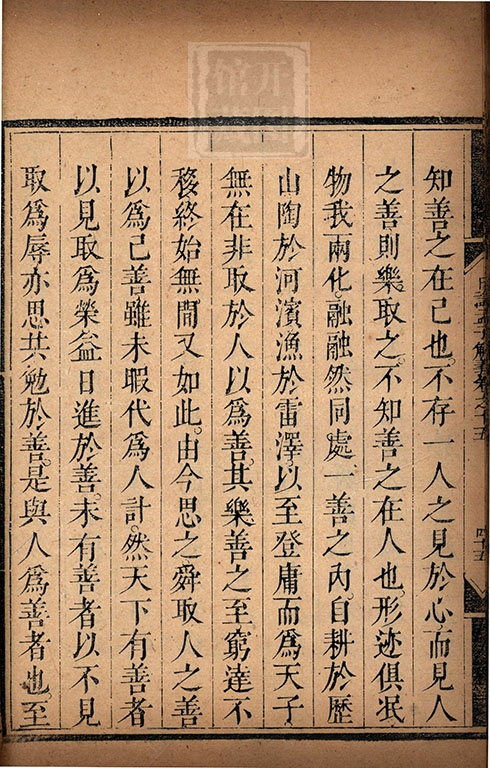 知善之在己也。不存一人之見於心。而見人
之善則樂取之。不知善之在人也。形迹俱泯
物我兩化。融融然同處一善之內。自耕於歷
山陶於河濱漁於雷澤。以至登庸而爲天子。
無在非取於人以爲善。其樂善之至窮達不
移終始無間又如此。由今思之舜取人之善
以爲己善雖未暇代爲人計。然天下有善者
以見取爲榮益日進於善。未有善者以不見
取爲辱亦思共勉於善。是與人爲善者也。至